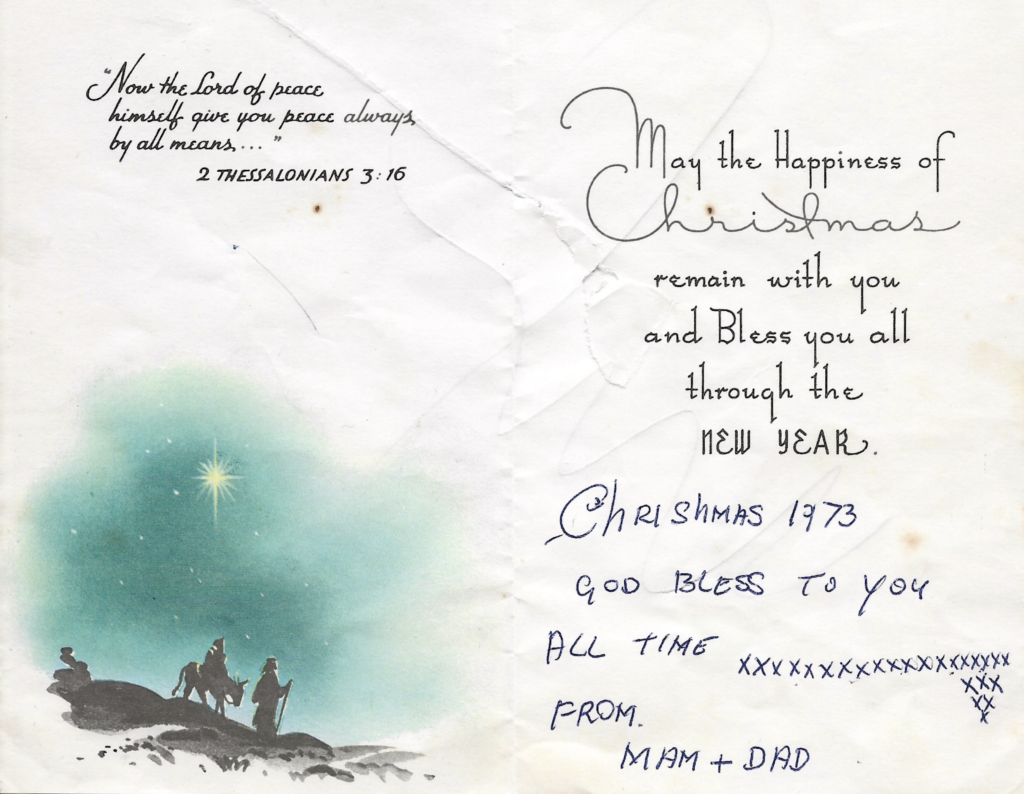 "Now the Lord of peace
himself give you peace always,
by all means,..."
2 THESSALONIANS 3:16
May the Happiness of
Christmas
remain with you
and Bless you all
through the
NEW YEAR.
CHRISHMAS 1973
GOD BLESS TO YOU
ALL TIME
XXXXXXXXXXXXXXXXXXX
XXX
XX
X
FROM.
MAM + DAD